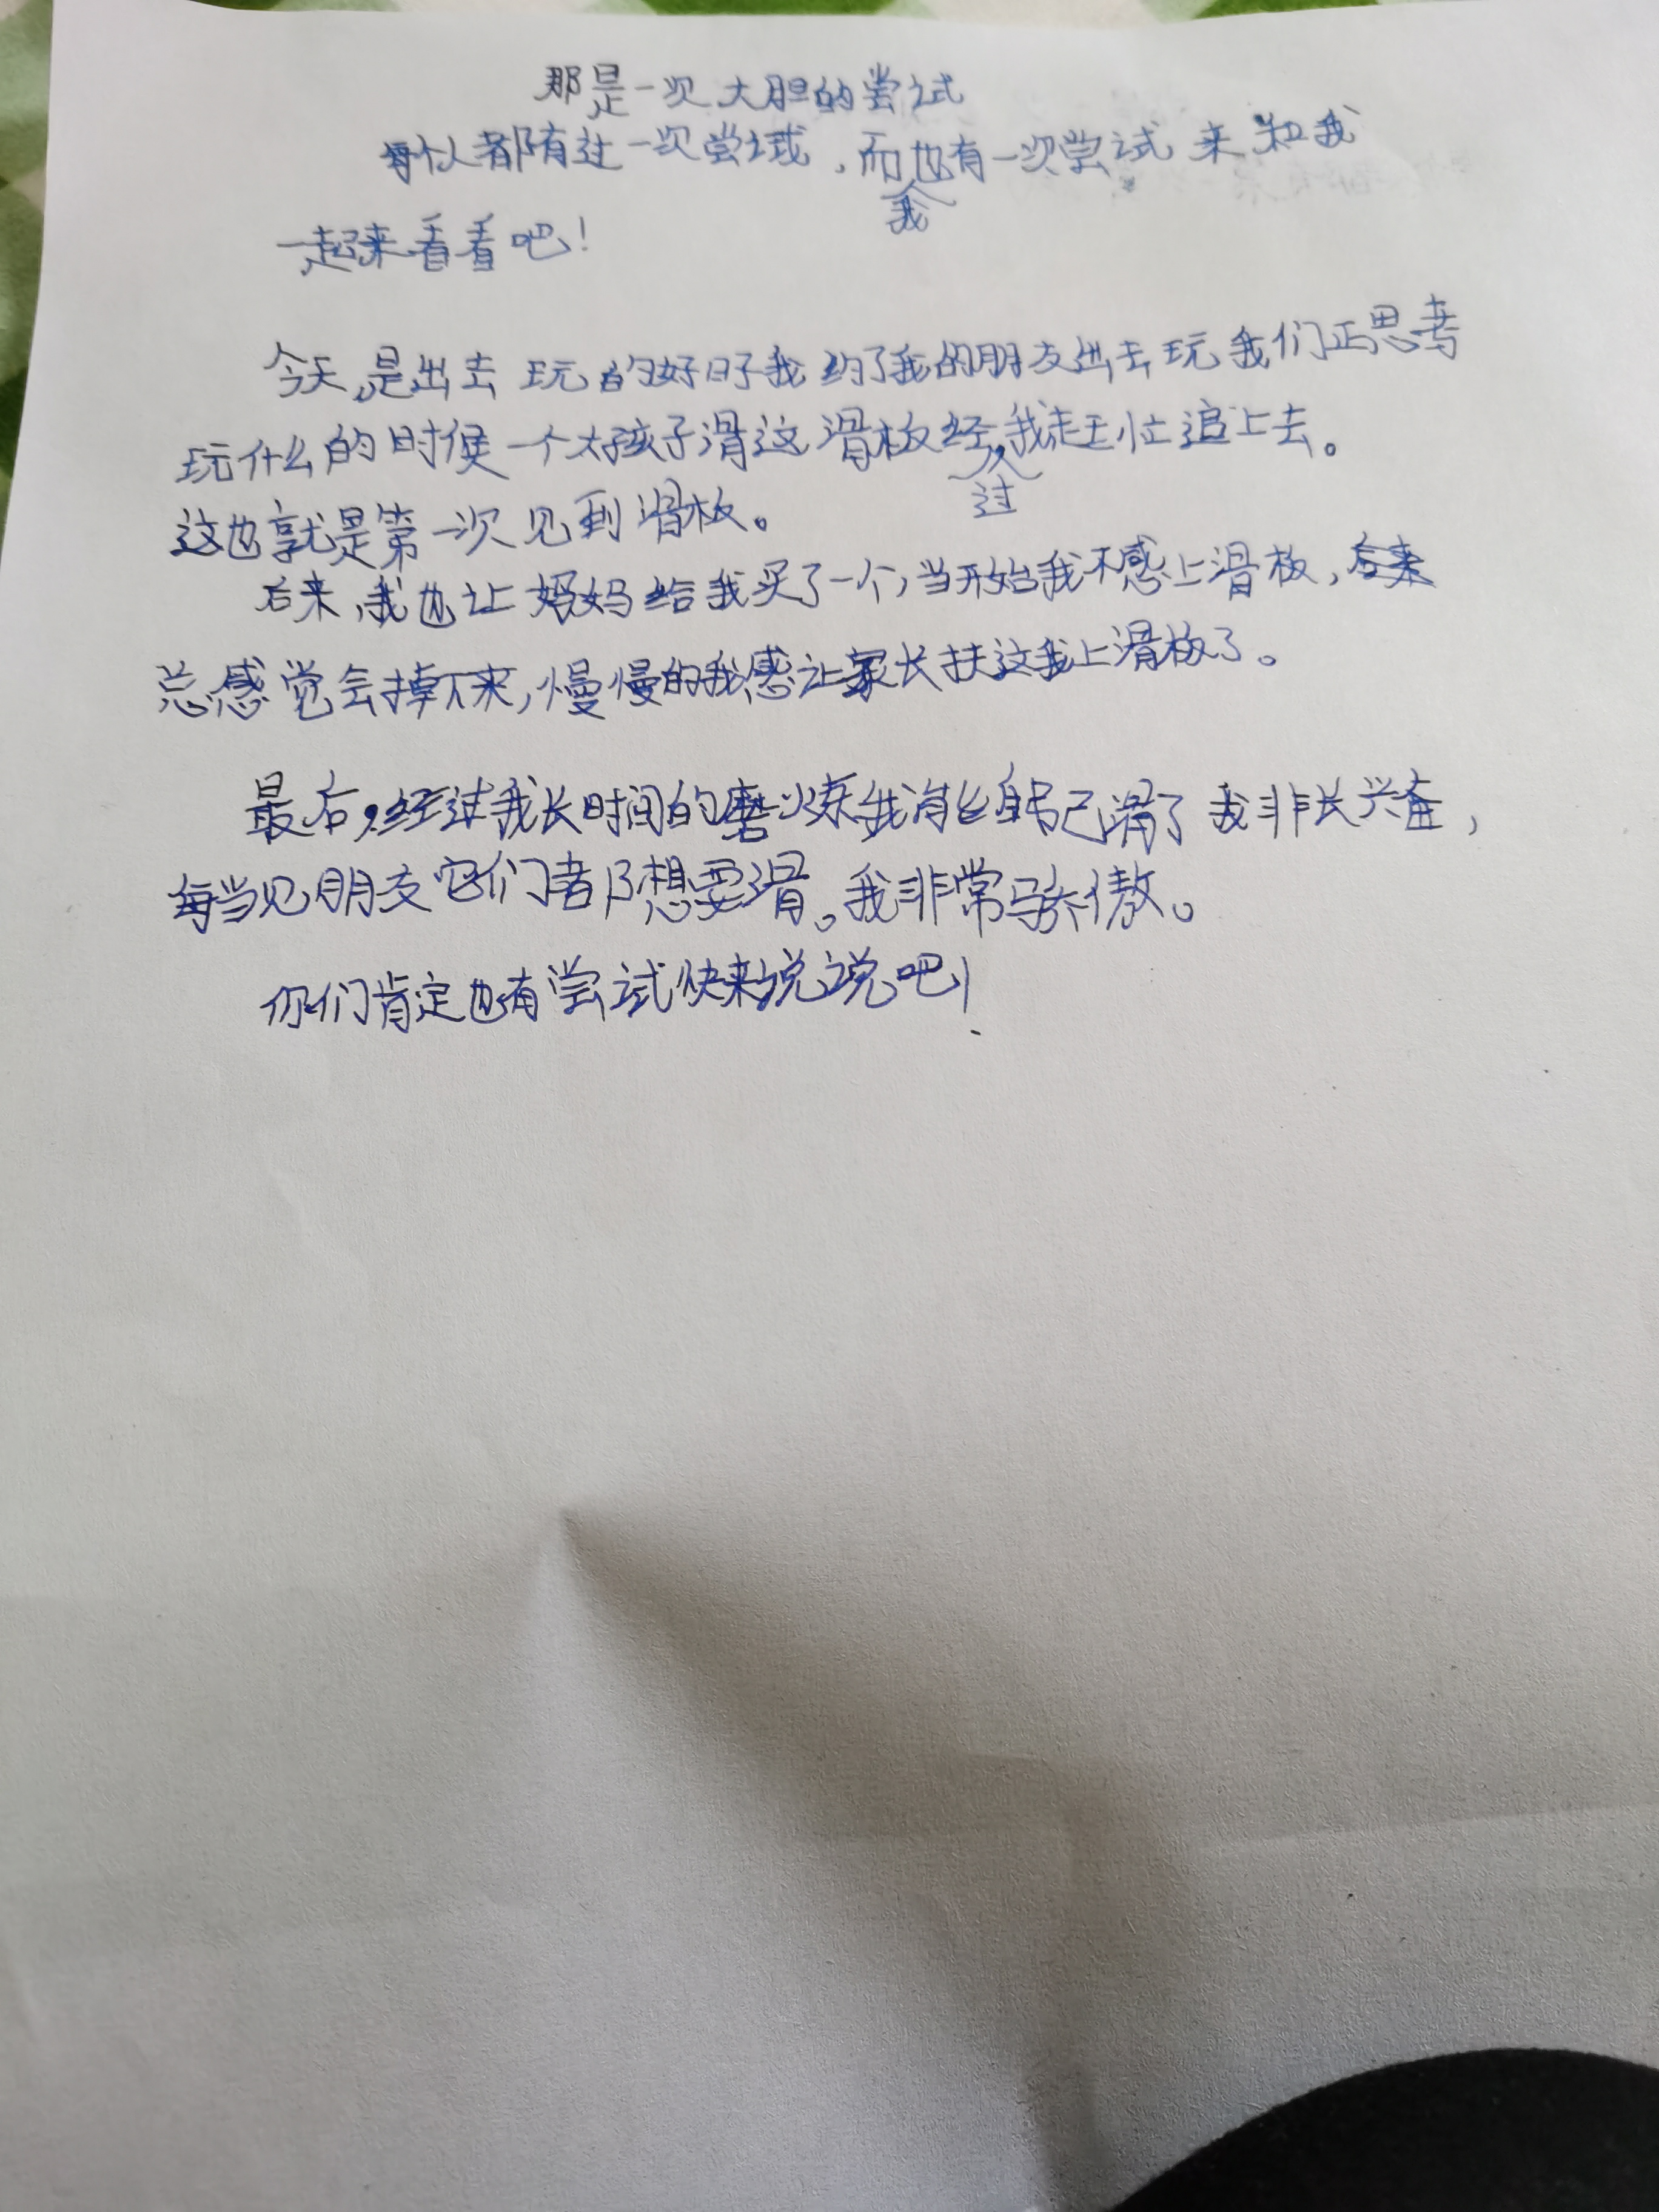 那是一次大胆的尝试
每个人都有过一次尝试，而我也有一次尝试来和我
一起来看看吧！
今天，是出去玩的好日子我约了我的朋友出去玩我们正思考
玩什么的时候一个大孩子滑这滑板经过，我赶忙追上去。
这也就是第一次见到滑板。
后来，我也让妈妈给我买了一个，当开始我不感上滑板，后来
总感觉会掉下来，慢慢的我感让家长扶这我上滑板了。
最后，经过我长时间的磨炼我能自己滑了我非长兴奋，
每当见朋友它们都想要滑。我非常骄傲。
你们肯定也有尝试快来说说吧！